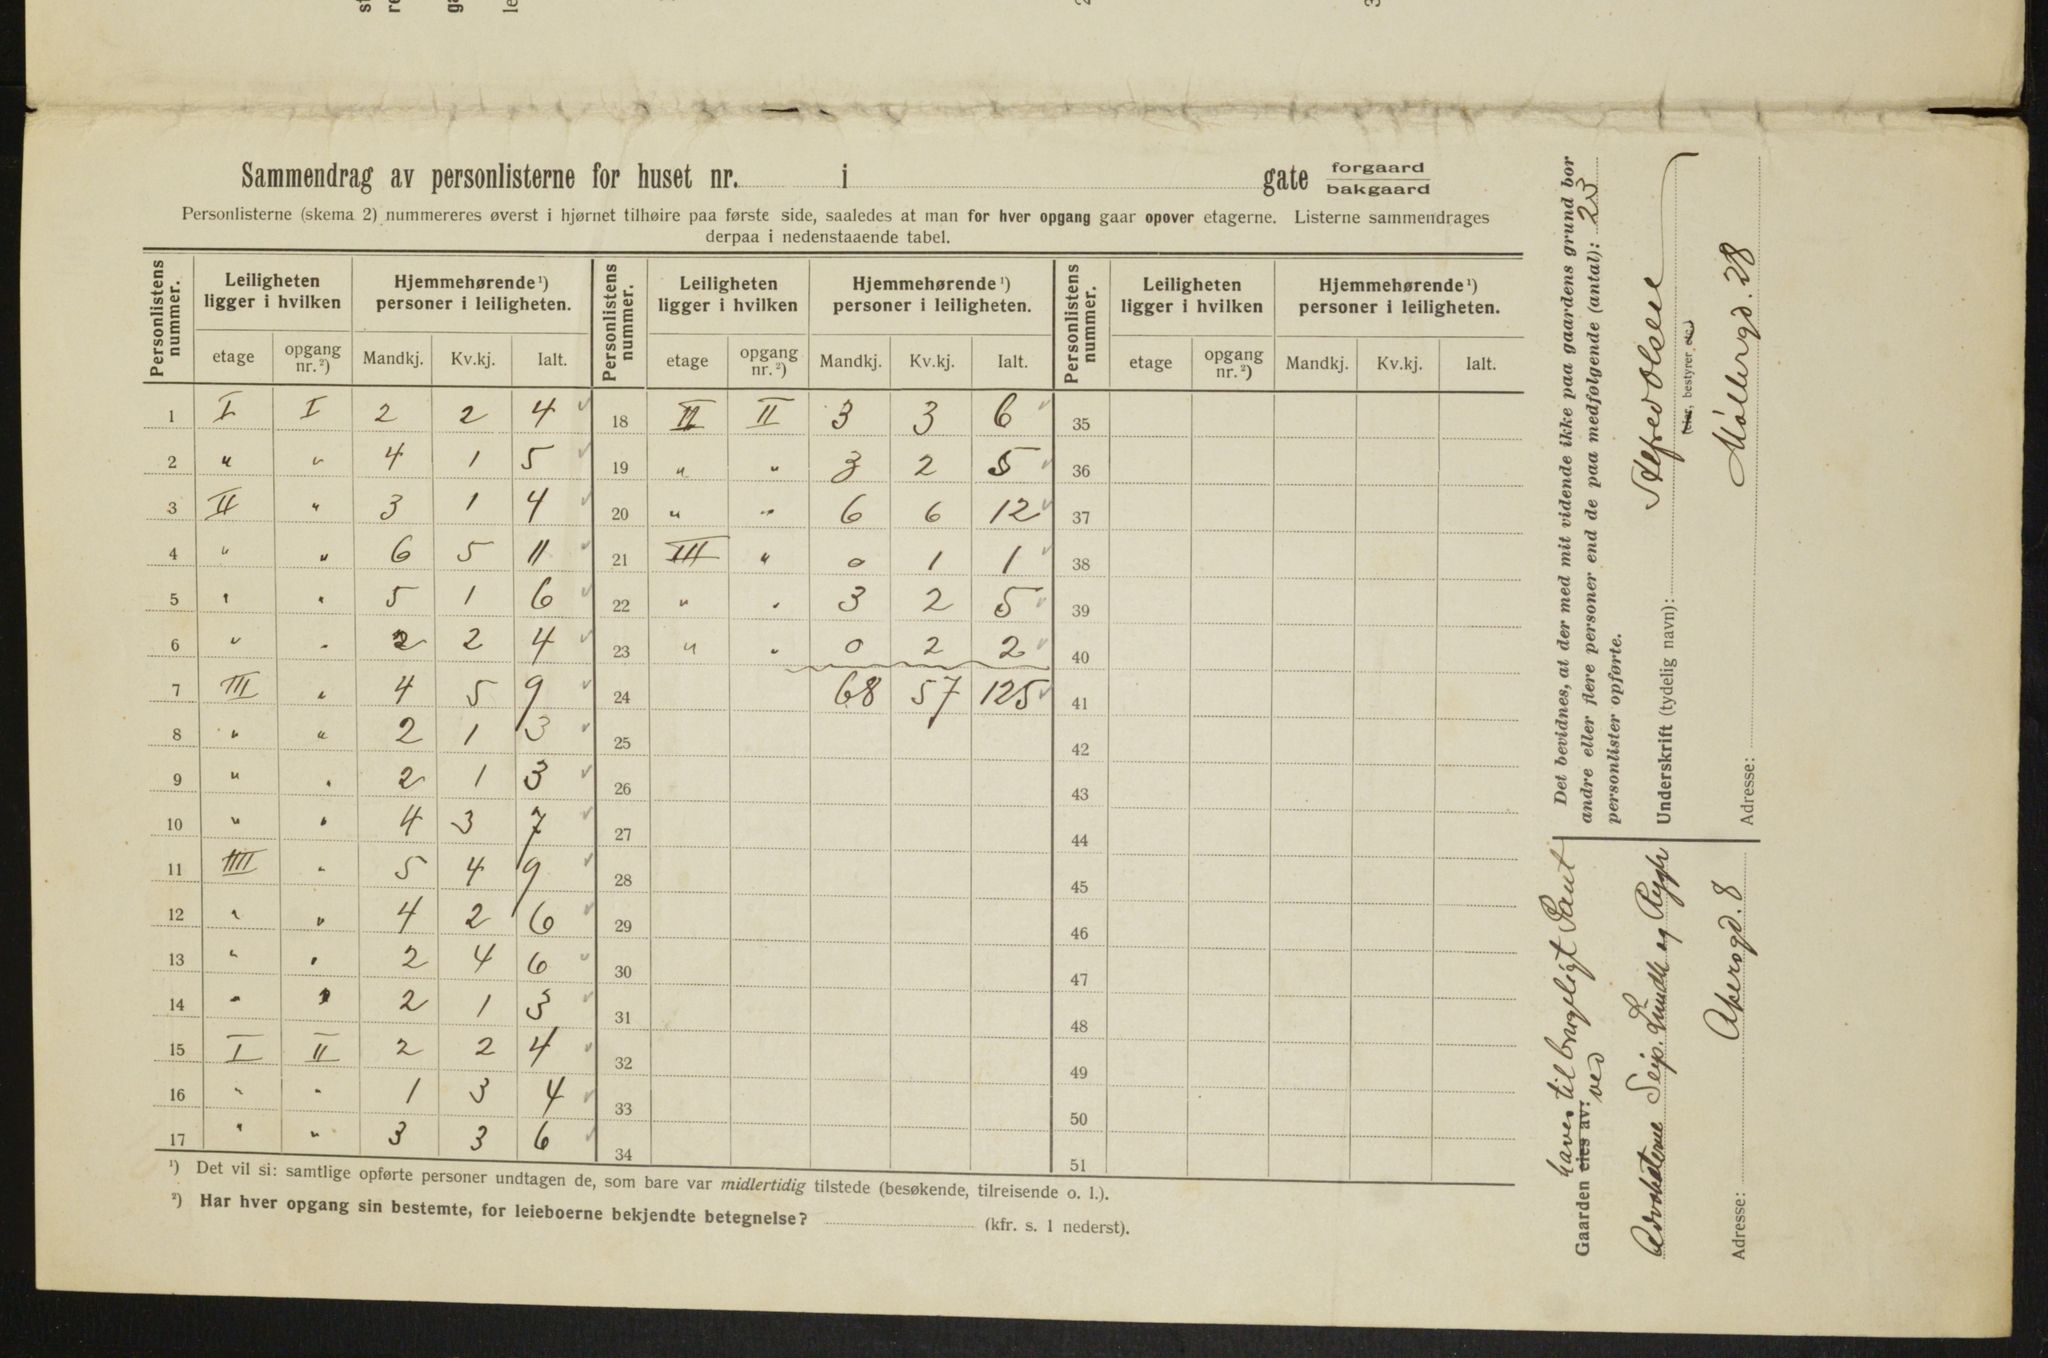 Sammendrag av personlisterne for huset nr. i gate forgaard bakgaard
Personlisterne (skema 2) nummereres øverst i hjørnet tilhøire paa første side, saaledes at man for hver opgang gaar opover etagerne. Listerne sammendrages
derpaa i nedenstaaende tabel.
Personlistens nummer. Leiligheten ligger i hvilken Hjemmehørende ¹) personer i leiligheten. Personlistens nummer. Leiligheten ligger i hvilken Hjemmehørende ¹) personer i leiligheten. Personlistens nummer. Leiligheten ligger i hvilken Hjemmehørende ¹) personer i leiligheten.
etage opgang nr. ²) Mandkj. Kv.kj. Ialt. etage opgang nr. ²) Mandkj. Kv.kj. Ialt. etage opgang nr. ²) Mandkj. Kv.kj. Ialt.
1 I I 2 2 4 18 II II 3 3 6 35
2 " " 4 1 5 19 " " 3 2 5 36
3 II " 3 1 4 20 " " 6 6 12 37
4 " " 6 5 11 21 III " 0 1 1 38
5 " " 5 1 6 22 " " 3 2 5 39
6 " " 2 2 4 23 " " 0 2 2 40
7 III " 4 5 9 24 68 57 125 41
8 " " 2 1 3 25 42
9 " " 2 1 3 26 43
10 " " 4 3 7 27 44
11 IIII " 5 4 9 28 45
12 " " 4 2 6 29 46
13 " " 2 4 6 30 47
14 " " 2 1 3 31 48
15 I II 2 2 4 32 49
16 " " 1 3 4 33 50
17 " " 3 3 6 34 51
¹) Det vil si: samtlige opførte personer undtagen de, som bare var midlertidig tilstede (besøkende, tilreisende o. l.).
²) Har hver opgang sin bestemte, for leieboerne bekjendte betegnelse? (kfr. s. 1 nederst).
Det bevidnes, at der med mit vidende ikke paa gaardens grund bor
andre eller flere personer end de paa medfølgende (antal): 23
personlister opførte.
Underskrift (tydelig navn): Alfred Olsen
(eier, bestyrer etc.)
Adresse: Møllergd. 28
haves til brugeligt Pant
Gaarden eies av: ved
Advokaterne Seip, Lundh og
Adresse: Akersgd. 8